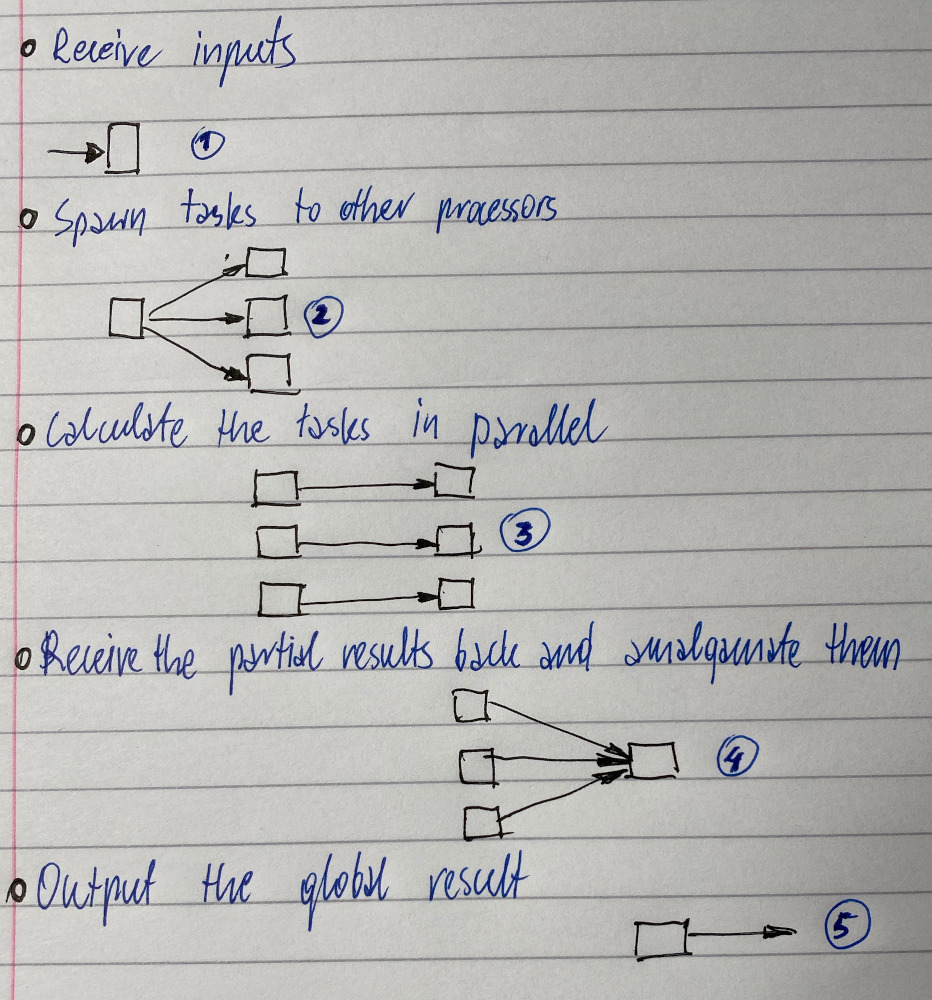 Receive inputs
1
Spawn tasks to other processors
2
Calculate the tasks in parallel
3
Receive the partial results back and amalgamate them
4
Output the global result
5